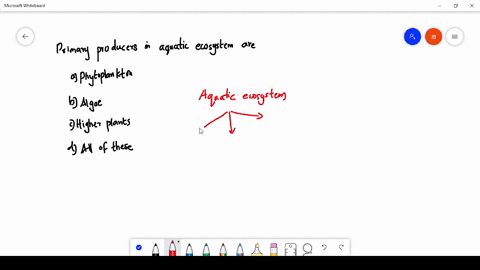 Microsoft Whiteboard
Primary producers in aquatic ecosystem are
a) Phytoplankton
b) Algae
c) Higher plants
d) All of these
Aquatic ecosystem